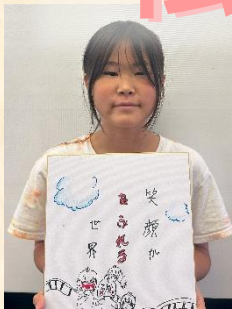 笑顔が
あふれる
世界